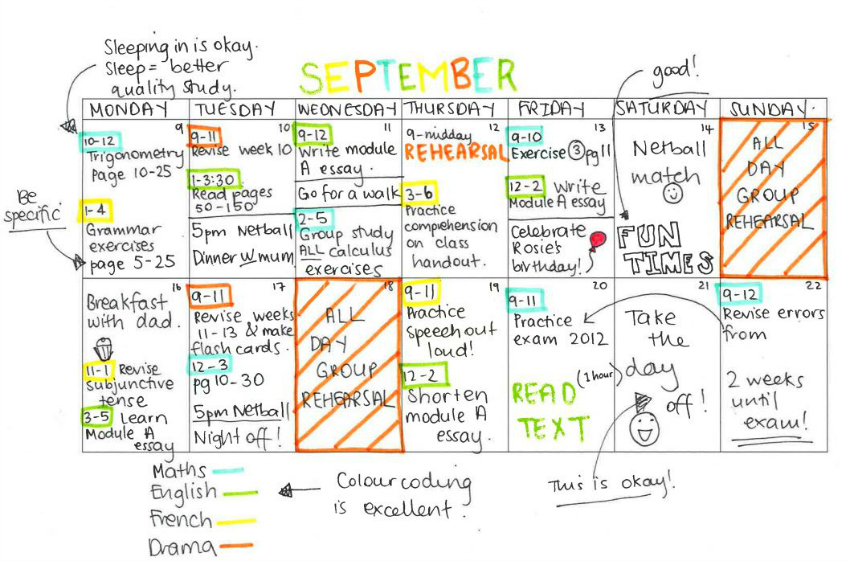 Sleeping in is okay.
Sleep = better
quality study.
SEPTEMBER
good!
MONDAY TUESDAY WEDNESDAY THURSDAY FRIDAY SATURDAY SUNDAY.
Be
specific
9
10-12
Trigonometry
page 10-25
1-4
Grammar
exercises
page 5-25
10
9-11
Revise week 10
1-3:30
Read pages
50-150
5pm Netball
Dinner w/ mum
11
9-12
Write module
A essay.
Go for a walk
2-5
Group study
ALL calculus
exercises
12
9-midday
REHEARSAL
3-6
Practice
comprehension
on class
handout.
13
9-10
Exercise 3 pg 11
12-2 Write
Module A essay
Celebrate
Rosie's
birthday!
14
Netball
match
FUN
TIMES
15
ALL
DAY
GROUP
REHEARSAL
16
Breakfast
with dad.
11-1 Revise
subjunctive
tense
3-5 Learn
Module A
essay
17
9-11
Revise weeks
11-13 & make
flash cards.
12-3
pg 10-30
5pm Netball
Night off!
18
ALL
DAY
GROUP
REHEARSAL
19
9-11
Practice
Speech out
loud!
12-2
Shorten
module A
essay.
20
9-11
Practice
exam 2012
READ
TEXT
(1 hour)
21
Take
the
day
off!
22
9-12
Revise errors
from
2 weeks
until
exam!
Maths
English
French
Drama
Colour coding
is excellent.
This is okay!